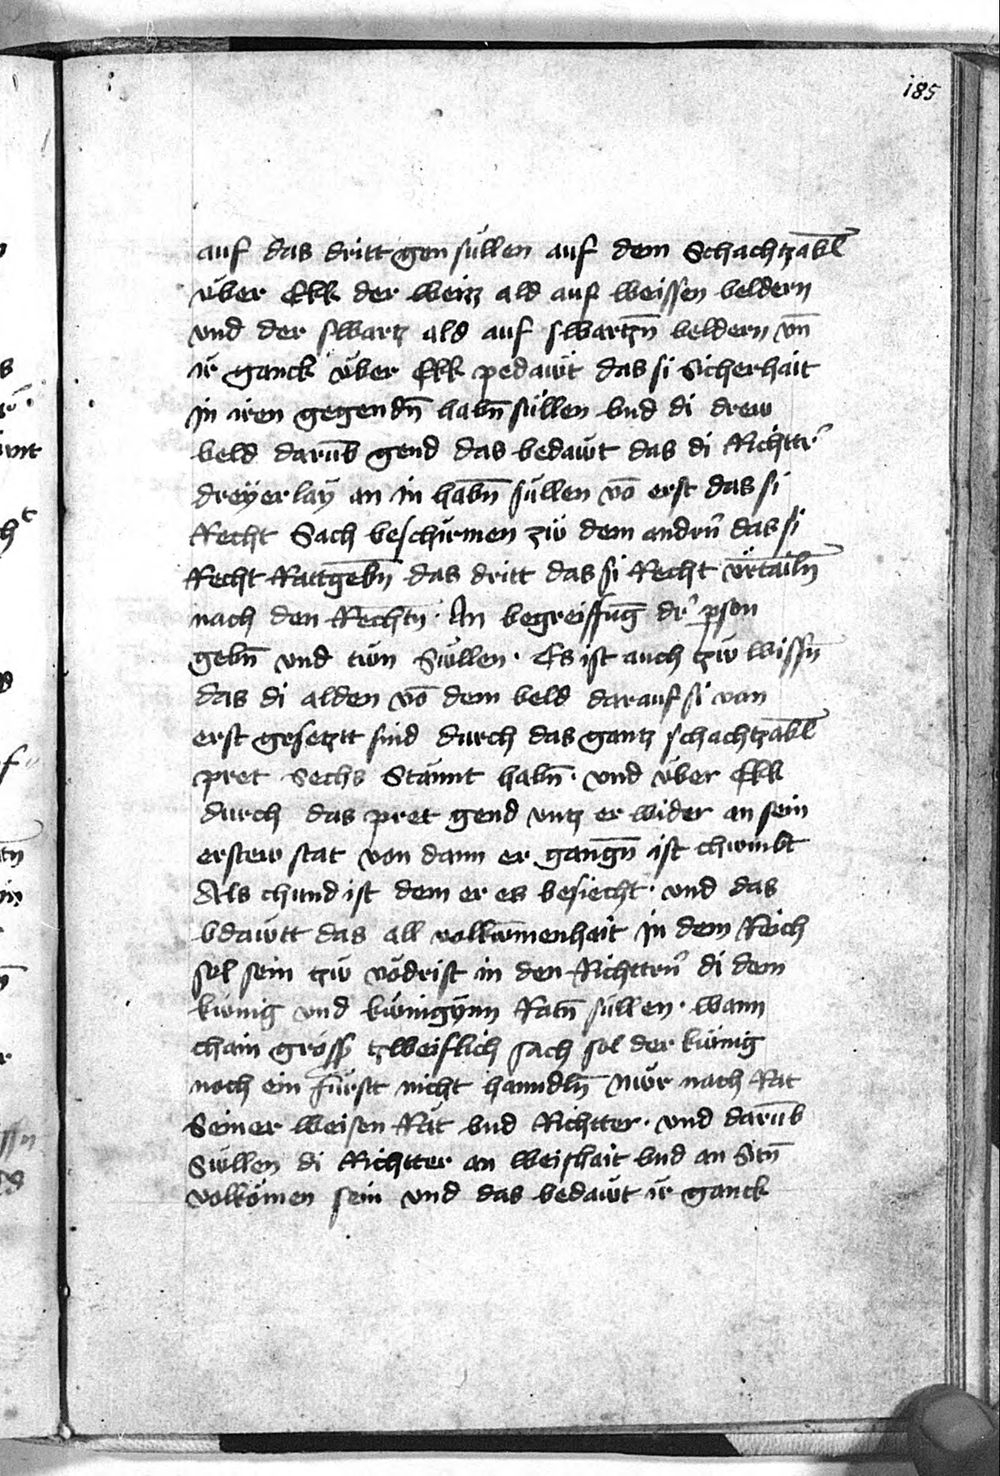 185
auf das dritt gen süllen auf dem Schachtzabl̄
über Ekk der weizz ald auf weissen veldern
vnd der swartz ald auf swartzn̄ veldern vn̄
ir ganck über Ekk pedawt das si Sicherhait
in iren gegendn̄ habn̄ süllen vnd di drew
veld darūb gend das bedawt das di Richttr̛
dreÿerlaÿ an in habn̄ süllen vō erst das si
Recht Sach beschirmen zw dem andrn̄ das si
Recht Rattgebn̄ das dritt das si Recht vrtailn̄
nach den Rechtn̄ · An begreiffūg dr̛ pson
gebn̄ vnd twn Süllen · Es ist auch tzw wissn̄
das di alden vō dem veld darauf si von
erst gesetztt sind durch das gantz schachtzabl̄
pret Sechs Stännt habn̄ · vnd über Ekk
durch das pret gend vntz er wider an sein
erstew stat von dann er gangn̄ ist chwmbt
Als chund ist dem er es besiecht · vnd das
bdawtt das all volkw̄menhait in dem Reich
sol sein tzw vodrist in den Richttrn̄ di dem
kwnig vnd kwnigÿnn Ratn̄ süllen · wann
chain gross tzweiflich sach sol der kwnig
noch ein fürstt nicht hanndln̄ nwr nach Rat
Seiner weisen Rät vnd Richtter · vnd darūb
Süllen di Richtter an weishait vnd an Sitn̄
volkōmen sein vnd das bedawt ir ganck